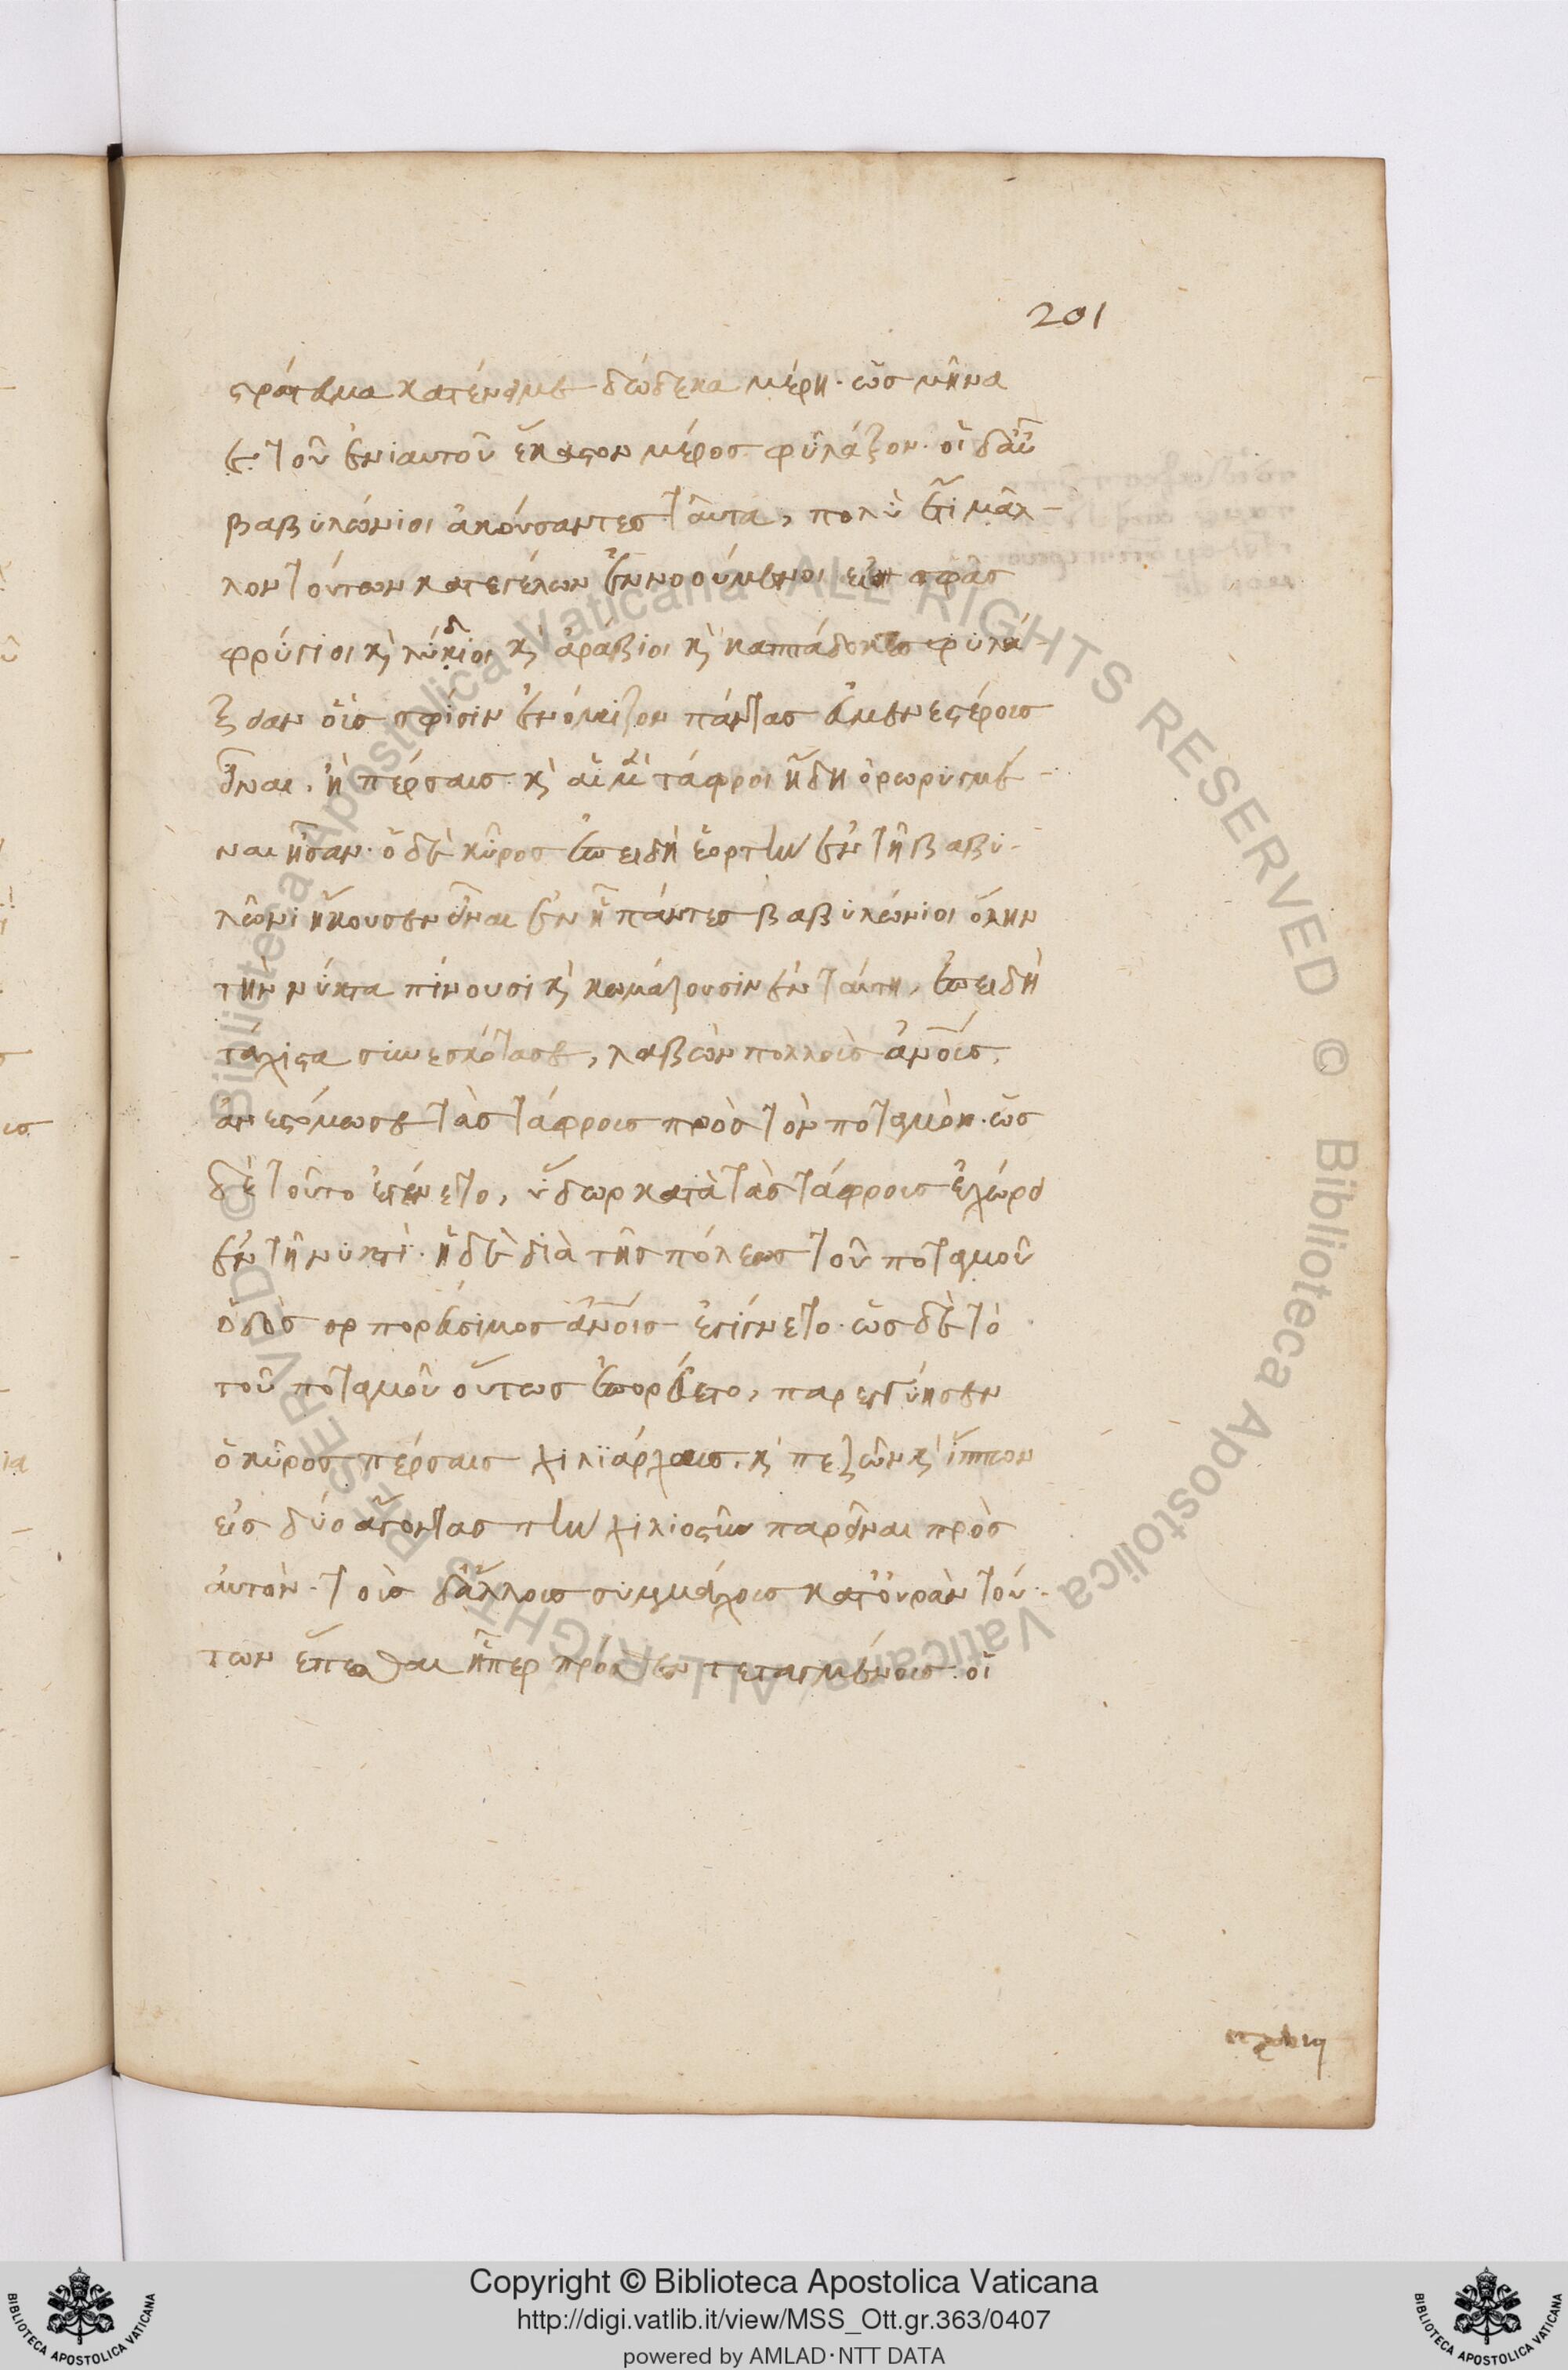 201
στράτευμα κατένειμε δώδεκα μέρη· ὡς μῆνα
ἐκ τοῦ ἐνιαυτοῦ ἕκαστον μέρος φυλάξον· οἱ δ' αὖ
βαβυλώνιοι ἀκούσαντες ταῦτα, πολὺ ἔτι μᾶλ-
λον τούτων κατεγέλων ἐννοούμενοι εἰ σφᾶς
φρύγιοι κ̀ λύκιοι κ̀ ἀράβιοι κ̀ καππάδοκες φυλά-
ξειαν οὓς σφίσιν ἐνόμιζον πάντας εὐμενεστέρους
εἶναι, ἢ πέρσαις· κ̀ αἱ μὲν τάφροι ἤδη ὀρωρυγμέ-
ναι ἦσαν· ὁ δὲ κῦρος ἐπειδὴ ἑορτὴν ἐν τῇ βαβυ-
λῶνι ἤκουσεν εἶναι ἐν ᾗ πάντες βαβυλώνιοι ὅλην
τὴν νύκτα πίνουσι κ̀ κωμάζουσιν ἐν ταύτῃ, ἐπειδὴ
τάχιστα συνεσκότασε, λαβὼν πολλοὺς ἀνους,
ἀνεστόμωσε τὰς τάφρους πρὸς τὸν ποταμὸν· ὡς
δὲ τοῦτο ἐγένετο, ὕδωρ κατὰ τὰς τάφρους ἐχώρει
ἐν τῇ νυκτὶ· ἡ δὲ διὰ τῆς πόλεως τοῦ ποταμοῦ
ὁδὸς πορεύσιμος ἀνοις ἐγίγνετο· ὡς δὲ τὸ
τοῦ ποταμοῦ οὕτως ἐπορεύετο, παρεγγύησεν
ὁ κῦρος πέρσαις χιλιάρχοις, κ̀ πεζῶν κ̀ ἵππων
εἰς δύο ἄγοντας τὴν χιλιοστὺν παρεῖναι πρὸς
αὐτὸν· τοὺς δ' ἄλλους συμμάχους κατ' οὐρὰν τού-
των ἕπεσθαι ᾗπερ πρόσθεν τεταγμένους· οἱ
Copyright © Biblioteca Apostolica Vaticana
http://digi.vatlib.it/view/MSS_Ott.gr.363/0407
powered by AMLAD·NTT DATA